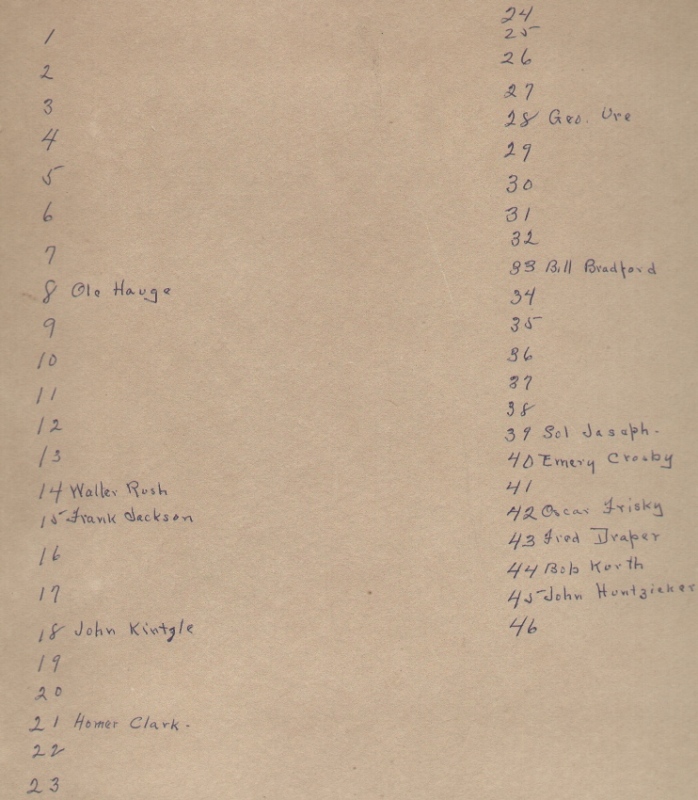 1
2
3
4
5
6
7
8 Ole Hauge
9
10
11
12
13
14 Walter Rush
15 Frank Jackson
16
17
18 John Kintgle
19
20
21 Homer Clark.
22
23
24
25
26
27
28 Geo. Ure
29
30
31
32
33 Bill Bradford
34
35
36
37
38
39 Sol Joseph.
40 Emery Crosby
41
42 Oscar Frisky
43 Fred Draper
44 Bob Korth
45 John Huntzieker
46